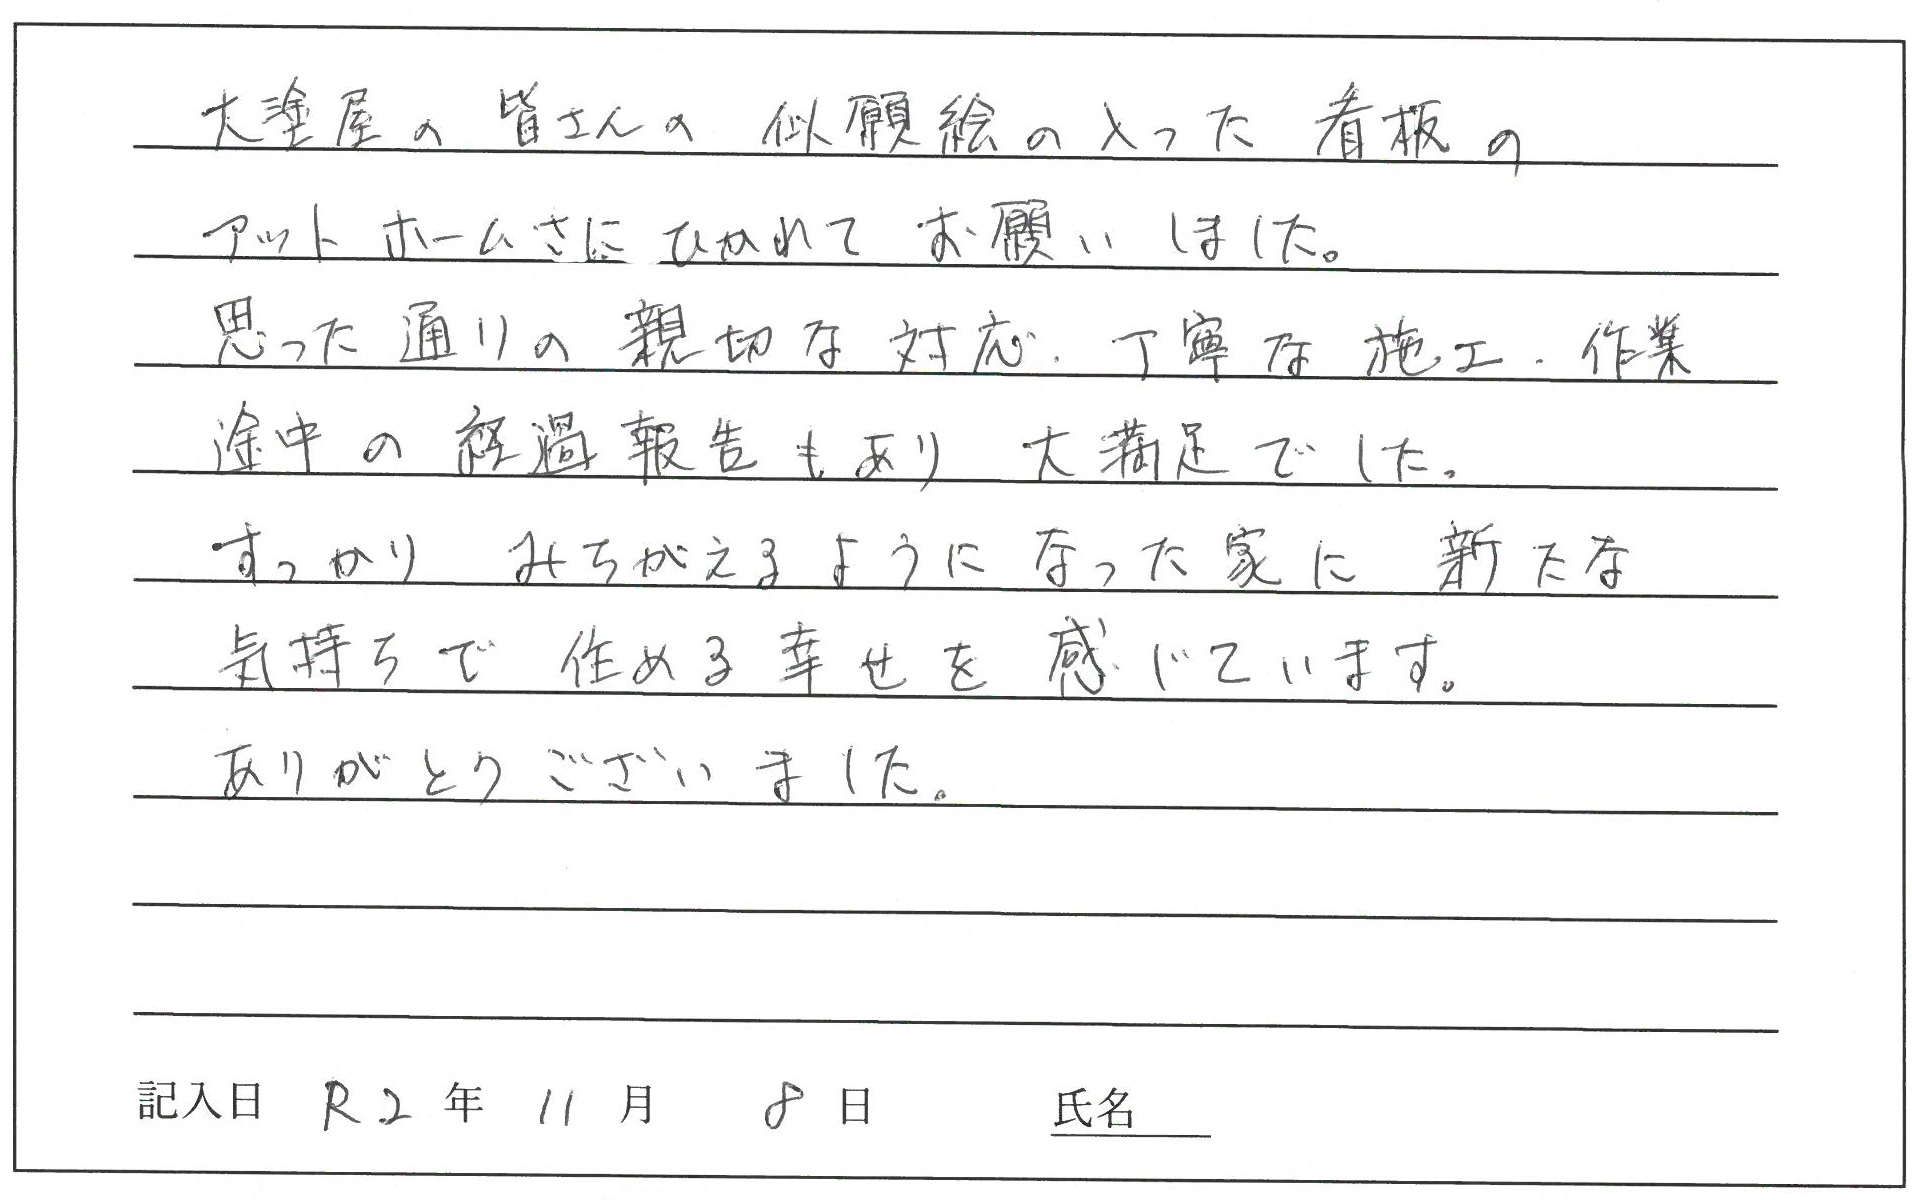 大塗屋の皆さんの似顔絵の入った看板の
アットホームさにひかれてお願いしました。
思った通りの親切な対応、丁寧な施工、作業
途中の経過報告もあり大満足でした。
すっかりみちがえるようになった家に新たな
気持ちで住める幸せを感じています。
ありがとうございました。
記入日 R2年 11月 8日 氏名